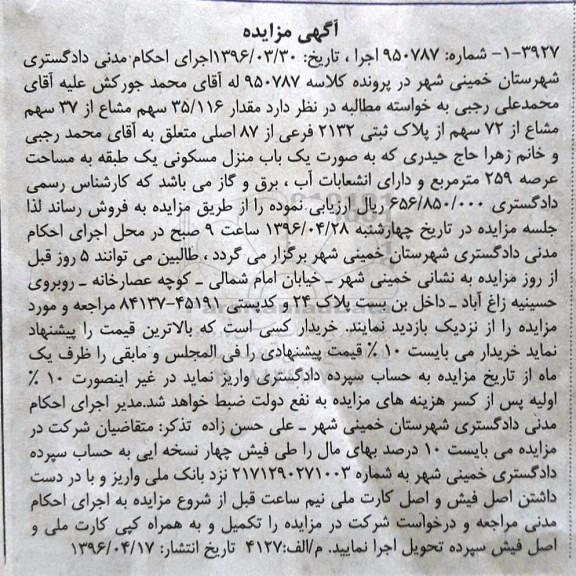 آگهی مزایده
۳۹۲۷-۱- شماره: ۹۵۰۷۸۷ اجرا ، تاریخ: ۱۳۹۶/۰۳/۳۰اجرای احکام مدنی دادگستری
شهرستان خمینی شهر در پرونده کلاسه ۹۵۰۷۸۷ له آقای محمد جورکش علیه آقای
محمدعلی رجبی به خواسته مطالبه در نظر دارد مقدار ۳۵/۱۱۶ سهم مشاع از ۳۷ سهم
مشاع از ۷۲ سهم از پلاک ثبتی ۲۱۳۲ فرعی از ۸۷ اصلی متعلق به آقای محمد رجبی
و خانم زهرا حاج حیدری که به صورت یک باب منزل مسکونی یک طبقه به مساحت
عرصه ۲۵۹ مترمربع و دارای انشعابات آب ، برق و گاز می باشد که کارشناس رسمی
دادگستری ۶۵۶/۸۵۰/۰۰۰ ریال ارزیابی نموده را از طریق مزایده به فروش رساند لذا
جلسه مزایده در تاریخ چهارشنبه ۱۳۹۶/۰۴/۲۸ ساعت ۹ صبح در محل اجرای احکام
مدنی دادگستری شهرستان خمینی شهر برگزار می گردد ، طالبین می توانند ۵ روز قبل
از روز مزایده به نشانی خمینی شهر ـ خیابان امام شمالی ـ کوچه عصارخانه ـ روبروی
حسینیه زاغ آباد ـ داخل بن بست پلاک ۲۴ و کدپستی ۴۵۱۹۱-۸۴۱۳۷ مراجعه و مورد
مزایده را از نزدیک بازدید نمایند. خریدار کسی است که بالاترین قیمت را پیشنهاد
نماید خریدار می بایست ۱۰ ٪ قیمت پیشنهادی را فی المجلس و مابقی را ظرف یک
ماه از تاریخ مزایده به حساب سپرده دادگستری واریز نماید در غیر اینصورت ۱۰ ٪
اولیه پس از کسر هزینه های مزایده به نفع دولت ضبط خواهد شد.مدیر اجرای احکام
مدنی دادگستری شهرستان خمینی شهر ـ علی حسن زاده تذکر: متقاضیان شرکت در
مزایده می بایست ۱۰ درصد بهای مال را طی فیش چهار نسخه ایی به حساب سپرده
دادگستری خمینی شهر به شماره ۲۱۷۱۲۹۰۲۷۱۰۰۳ نزد بانک ملی واریز و با در دست
داشتن اصل فیش و اصل کارت ملی نیم ساعت قبل از شروع مزایده به اجرای احکام
مدنی مراجعه و درخواست شرکت در مزایده را تکمیل و به همراه کپی کارت ملی و
اصل فیش سپرده تحویل اجرا نمایید. م/الف:۴۱۲۷ تاریخ انتشار: ۱۳۹۶/۰۴/۱۷